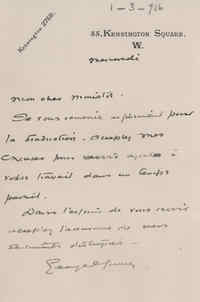 1-3-916
Kensington 2769.
55, KENSINGTON SQUARE.
W.
mercredi
Mon cher
Le souvenir
la traduction. Acceptez mes
excuses pour avoir ajouté à
votre travail dans un temps
pareil.
Dans l'espoir de vous revoir
acceptez l'assurance de mes
sentiments distingués.